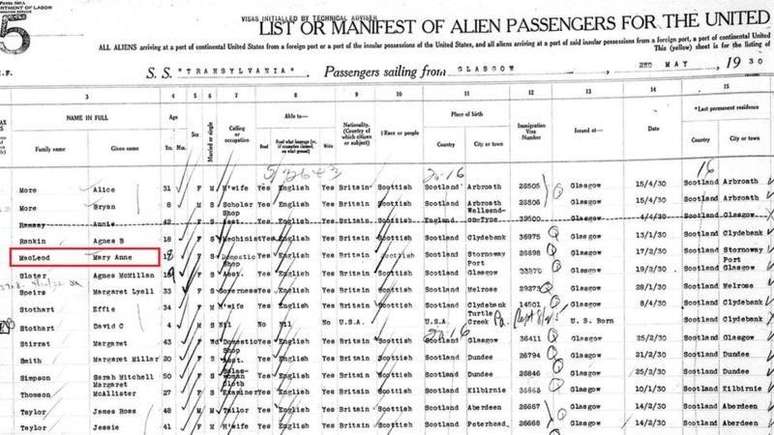 5
VISAS INITIALLED BY TECHNICAL ADVISER
LIST OR MANIFEST OF ALIEN PASSENGERS FOR THE UNITED
ALL ALIENS arriving at a port of continental United States from a foreign port or a port of the insular possessions of the United States, and all aliens arriving at a port of said insular possessions from a foreign port, a port of continental
This (yellow) sheet is for the listing of
S. S. "TRANSYLVANIA" Passengers sailing from GLASGOW 2ND MAY 19 30
3 4 5 6 7 8 9 10 11 12 13 14 15
NAME IN FULL Age Sex Married or single Calling or occupation Able to— Nationality. (Country of which citizen or subject) Race or people Place of birth Immigration Visa Number Issued at— Date *Last permanent residence
Family name Given name Yrs. Mos. Read Read what language Write Country City or town Country City or town
More Alice 31 F M H'wife Yes English Yes Britain Scottish Scotland Arbroath 26505 Glasgow 15/4/30 Scotland Arbroath
More Bryan 8 M S Scholar Yes English Yes Britain Scottish Scotland Arbroath 26506 Glasgow 15/4/30 Scotland Arbroath
Ramsay Annie 42 F Shop Asst. Yes English Yes Britain Scottish England Wallsend-on-Tyne 39500 Glasgow 4/4/30 Scotland Glasgow
Rankin Agnes B 18 F S Machinist Yes English Yes Britain Scottish Scotland Clydebank 36975 Glasgow 13/1/30 Scotland Clydebank
MacLeod Mary Anne 18 F S Domestic Yes English Yes Britain Scottish Scotland Stornoway 26898 Glasgow 17/2/30 Scotland Stornoway
Slater Agnes McMillan F S Shop Asst. Yes English Yes Britain Scottish Scotland Glasgow Glasgow Scotland Port Glasgow
Speirs Margaret Lyell 33 F S Governess Yes English Yes Britain Scottish Scotland Melrose 29273 Glasgow 28/1/30 Scotland Melrose
Stothart Effie 34 F M H'wife Yes English Yes Britain Scottish Scotland Clydebank 14501 Glasgow 8/4/30 Scotland Clydebank
Stothart David C 4 M S Nil No Nil No U.S.A. Scottish U.S.A. Turtle Creek Pa. U. S. Born Scotland Clydebank
Stirrat Margaret 43 F Domestic Yes English Yes Britain Scottish Scotland Glasgow 36411 Glasgow 25/2/30 Scotland Glasgow
Smith Margaret Millar 20 F S Shop Asst. Yes English Yes Britain Scottish Scotland Dundee 26794 Glasgow 21/2/30 Scotland Dundee
Simpson Sarah Mitchell 50 F Saleswoman Yes English Yes Britain Scottish Scotland Dundee 26846 Glasgow 25/3/30 Scotland Dundee
Thomson Margaret McAllister 27 F S Cloth Examiner Yes English Yes Britain Scottish Scotland Kilbirnie Glasgow 10/1/30 Scotland Kilbirnie
Taylor James Ross 48 M M Tailor Yes English Yes Britain Scottish Scotland Aberdeen 26657 Glasgow 14/2/30 Scotland Aberdeen
Taylor Jessie 41 F M H'wife Yes English Yes Britain Scottish Scotland Peterhead Glasgow 14/2/30 Scotland Aberdeen